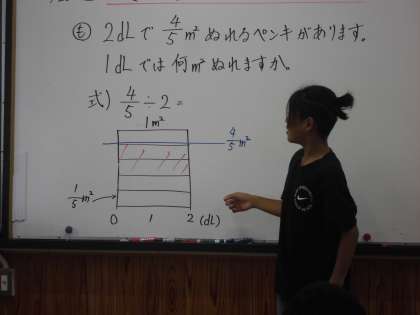 も 2dLで 4/5 m² ぬれるペンキがあります。
1dLでは何m²ぬれますか。
式) 4/5 ÷ 2 =
1m²
4/5 m²
1/5 m²
0 1 2 (dL)